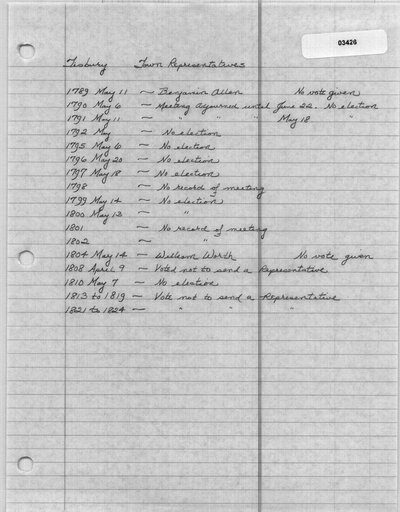 03426
Tisbury Town Representatives
1789 May 11 — Benjamin Allen No vote given
1790 May 6 — Meeting adjourned until June 22. No election
1791 May 11 — " " " May 18 "
1792 May — No election
1795 May 6 — No election
1796 May 20 — No election
1797 May 18 — No election
1798 — No record of meeting
1799 May 14 — No election
1800 May 13 — "
1801 — No record of meeting
1802 — "
1804 May 14 — William Worth No vote given
1808 April 9 — Voted not to send a Representative
1810 May 7 — No election
1813 to 1819 — Vote not to send a Representative
1821 to 1824 — " " " "